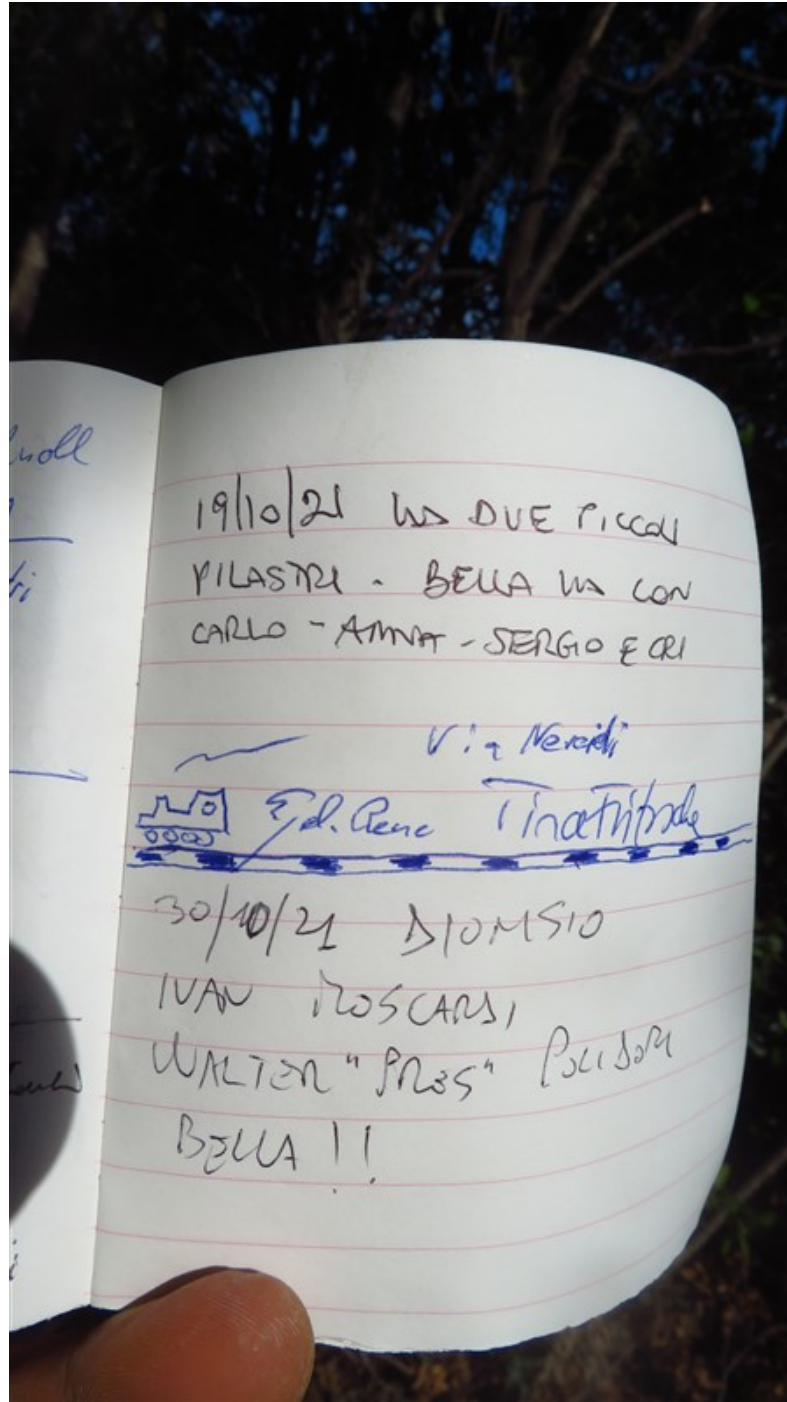 19/10/21 VIA DUE PICCOLI
PILASTRI - BELLA VIA CON
CARLO - ANNA - SERGIO E CRI
Via Nereidi
30/10/21 DIONISIO
IVAN MOSCARDI
WALTER "PRES" POLIDORI
BELLA !!